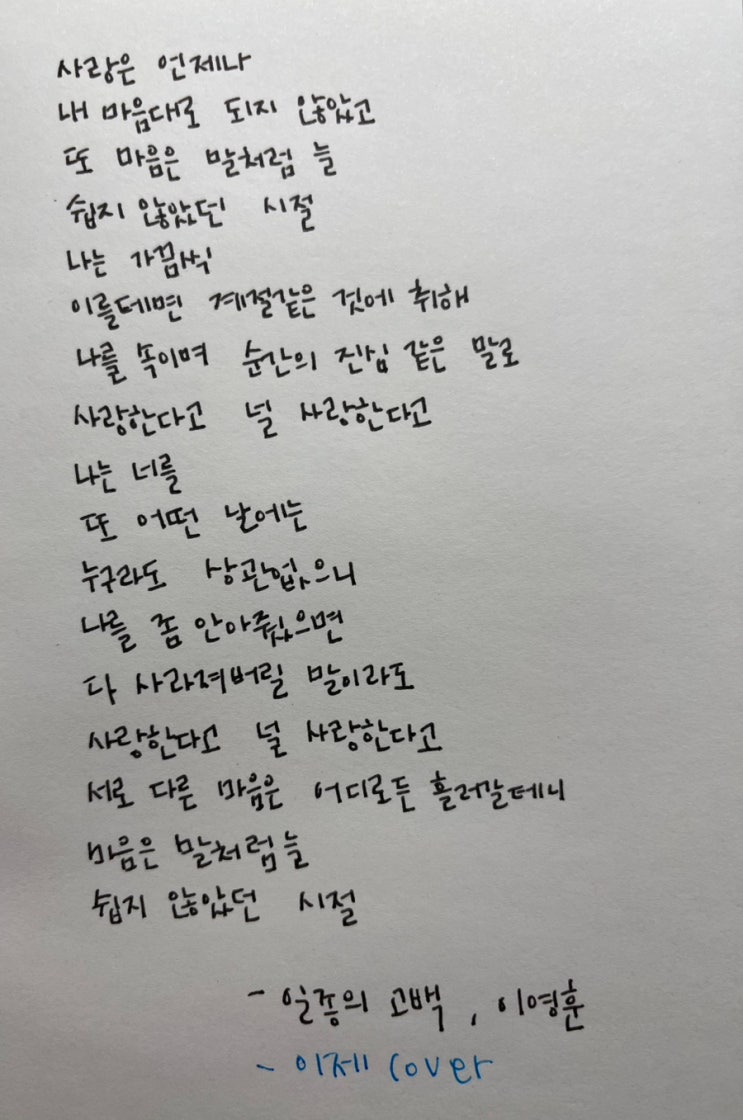 사랑은 언제나
내 마음대로 되지 않았고
또 마음은 말처럼 늘
쉽지 않았던 시절
나는 가끔씩
이를테면 계절같은 것에 취해
나를 속이며 순간의 진심 같은 말로
사랑한다고 널 사랑한다고
나는 너를
또 어떤 날에는
누구라도 상관없으니
나를 좀 안아줬으면
다 사라져버릴 말이라도
사랑한다고 널 사랑한다고
서로 다른 마음은 어디로든 흘러갈테니
마음은 말처럼 늘
쉽지 않았던 시절
- 일종의 고백, 이영훈
- 이제 cover